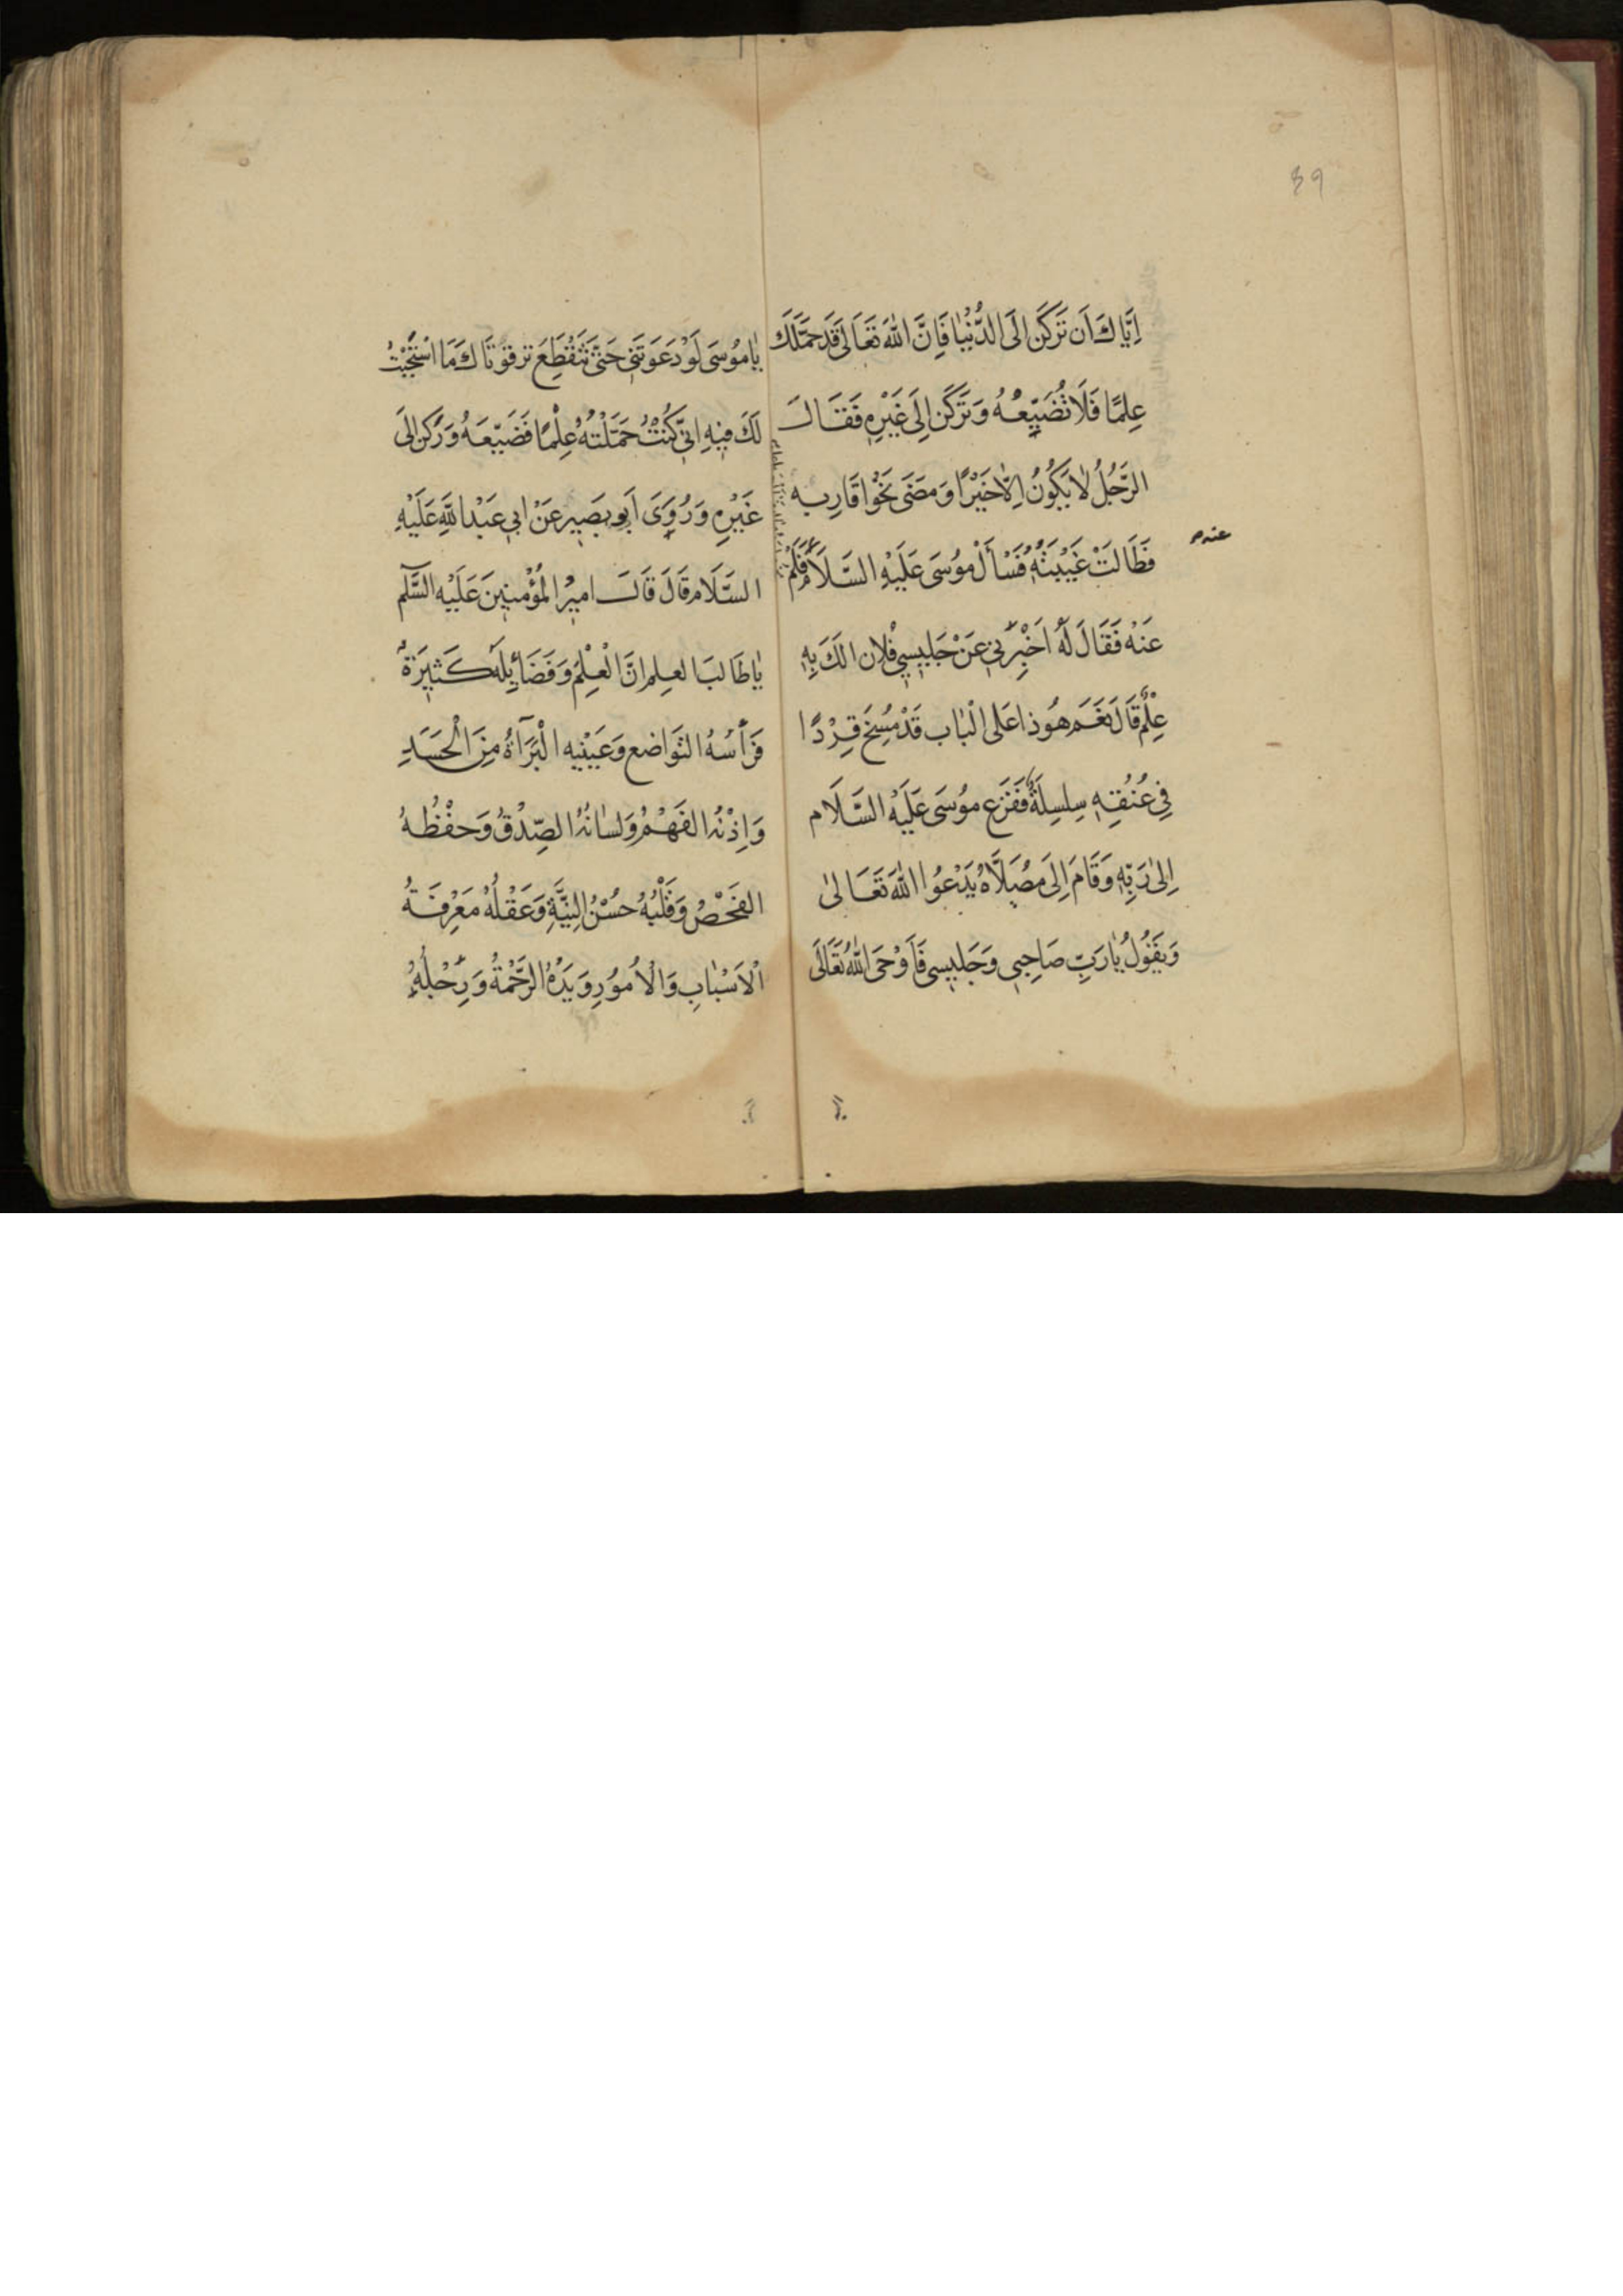 39
اِيَّاكَ اَن تَركَن اِلَى الدُّنْيٰا فَاِنَّ اللّٰهَ تَعَالٰى قَد حَمَّلَكَ
عِلمًا فَلَا تُضَيِّعُهُ وَتَركَن اِلَى غَيْرِهِ فَقَالَ
الرَّجُلُ لٰا يَكُونُ اِلّٰا خَيْرًا وَمَضٰى نَحْوَا قَارِبِه
فَطَالَتْ غَيْبَتَهُ فَسْأَلْ مُوسَى عَلَيْهِ السَّلَامُ فَلَمْ
عنه م
عَنْه فَقَالَ لَهُ اَخْبِرْنِي عَنْ جَلِيسِي فُلٰان الَكَ بِهِ
عِلْمٌ قَالَ نَعَم هُوَ ذا عَلى الْبٰاب قَدْ مُسِخَ قِرْدًا
فِي عُنُقِهِ سِلسِلَةٌ فَفَزَع مُوسَى عَلَيْهِ السَّلَام
اِلىٰ رَبِّهِ وَقَامَ اِلَى مُصَلَّاهُ يَدْعُوا اللّٰهَ تَعَالىٰ
وَيَقُولُ يٰا رَبِّ صَاحِبِي وَجَلِيسِي فَاَوْحَى اللّٰهُ تَعَالَى
يٰا مُوسَى لَوْ دَعَوتَنِي حَتّٰى تَنْقَطِعَ ترقوَتَاكَ مَا اسْتَجَبْتُ
لَكَ فِيهِ اِنّي كُنْتُ حَمَّلْتهُ عِلْمًا فَضَيَّعَهُ وَرَكَن اِلَى
غَيْرِهِ وَرُوِىَ اَبو بَصِير عَنْ ابي عَبْد اللّٰهِ عَلَيْهِ
السَّلَام قَالَ قَالَ اميرُ الْمُؤْمِنِينَ عَلَيْه السَّلٰم
يٰا طَالبَ العِلمِ اِنَّ الْعِلْمَ وَفَضَائِلَهُ كَثِيرَةٌ
فَرَأسُهُ التَّوَاضع وَعَيْنيِه الْبَرَآةُ مِنَ الْحَسَدِ
وَاِذْنُهُ الفَهْمُ وَلسٰانُهُ الصِّدْقُ وَحفْظُهُ
الفَحْصُ وَقَلْبُهُ حُسْنُ النِّيَّةِ وَعَقْلُهُ مَعْرِفَةُ
الْاَسْبٰابِ وَالْاُمُورِ وَيَدُهُ الرَّحْمَةُ وَرِجْلُهُ